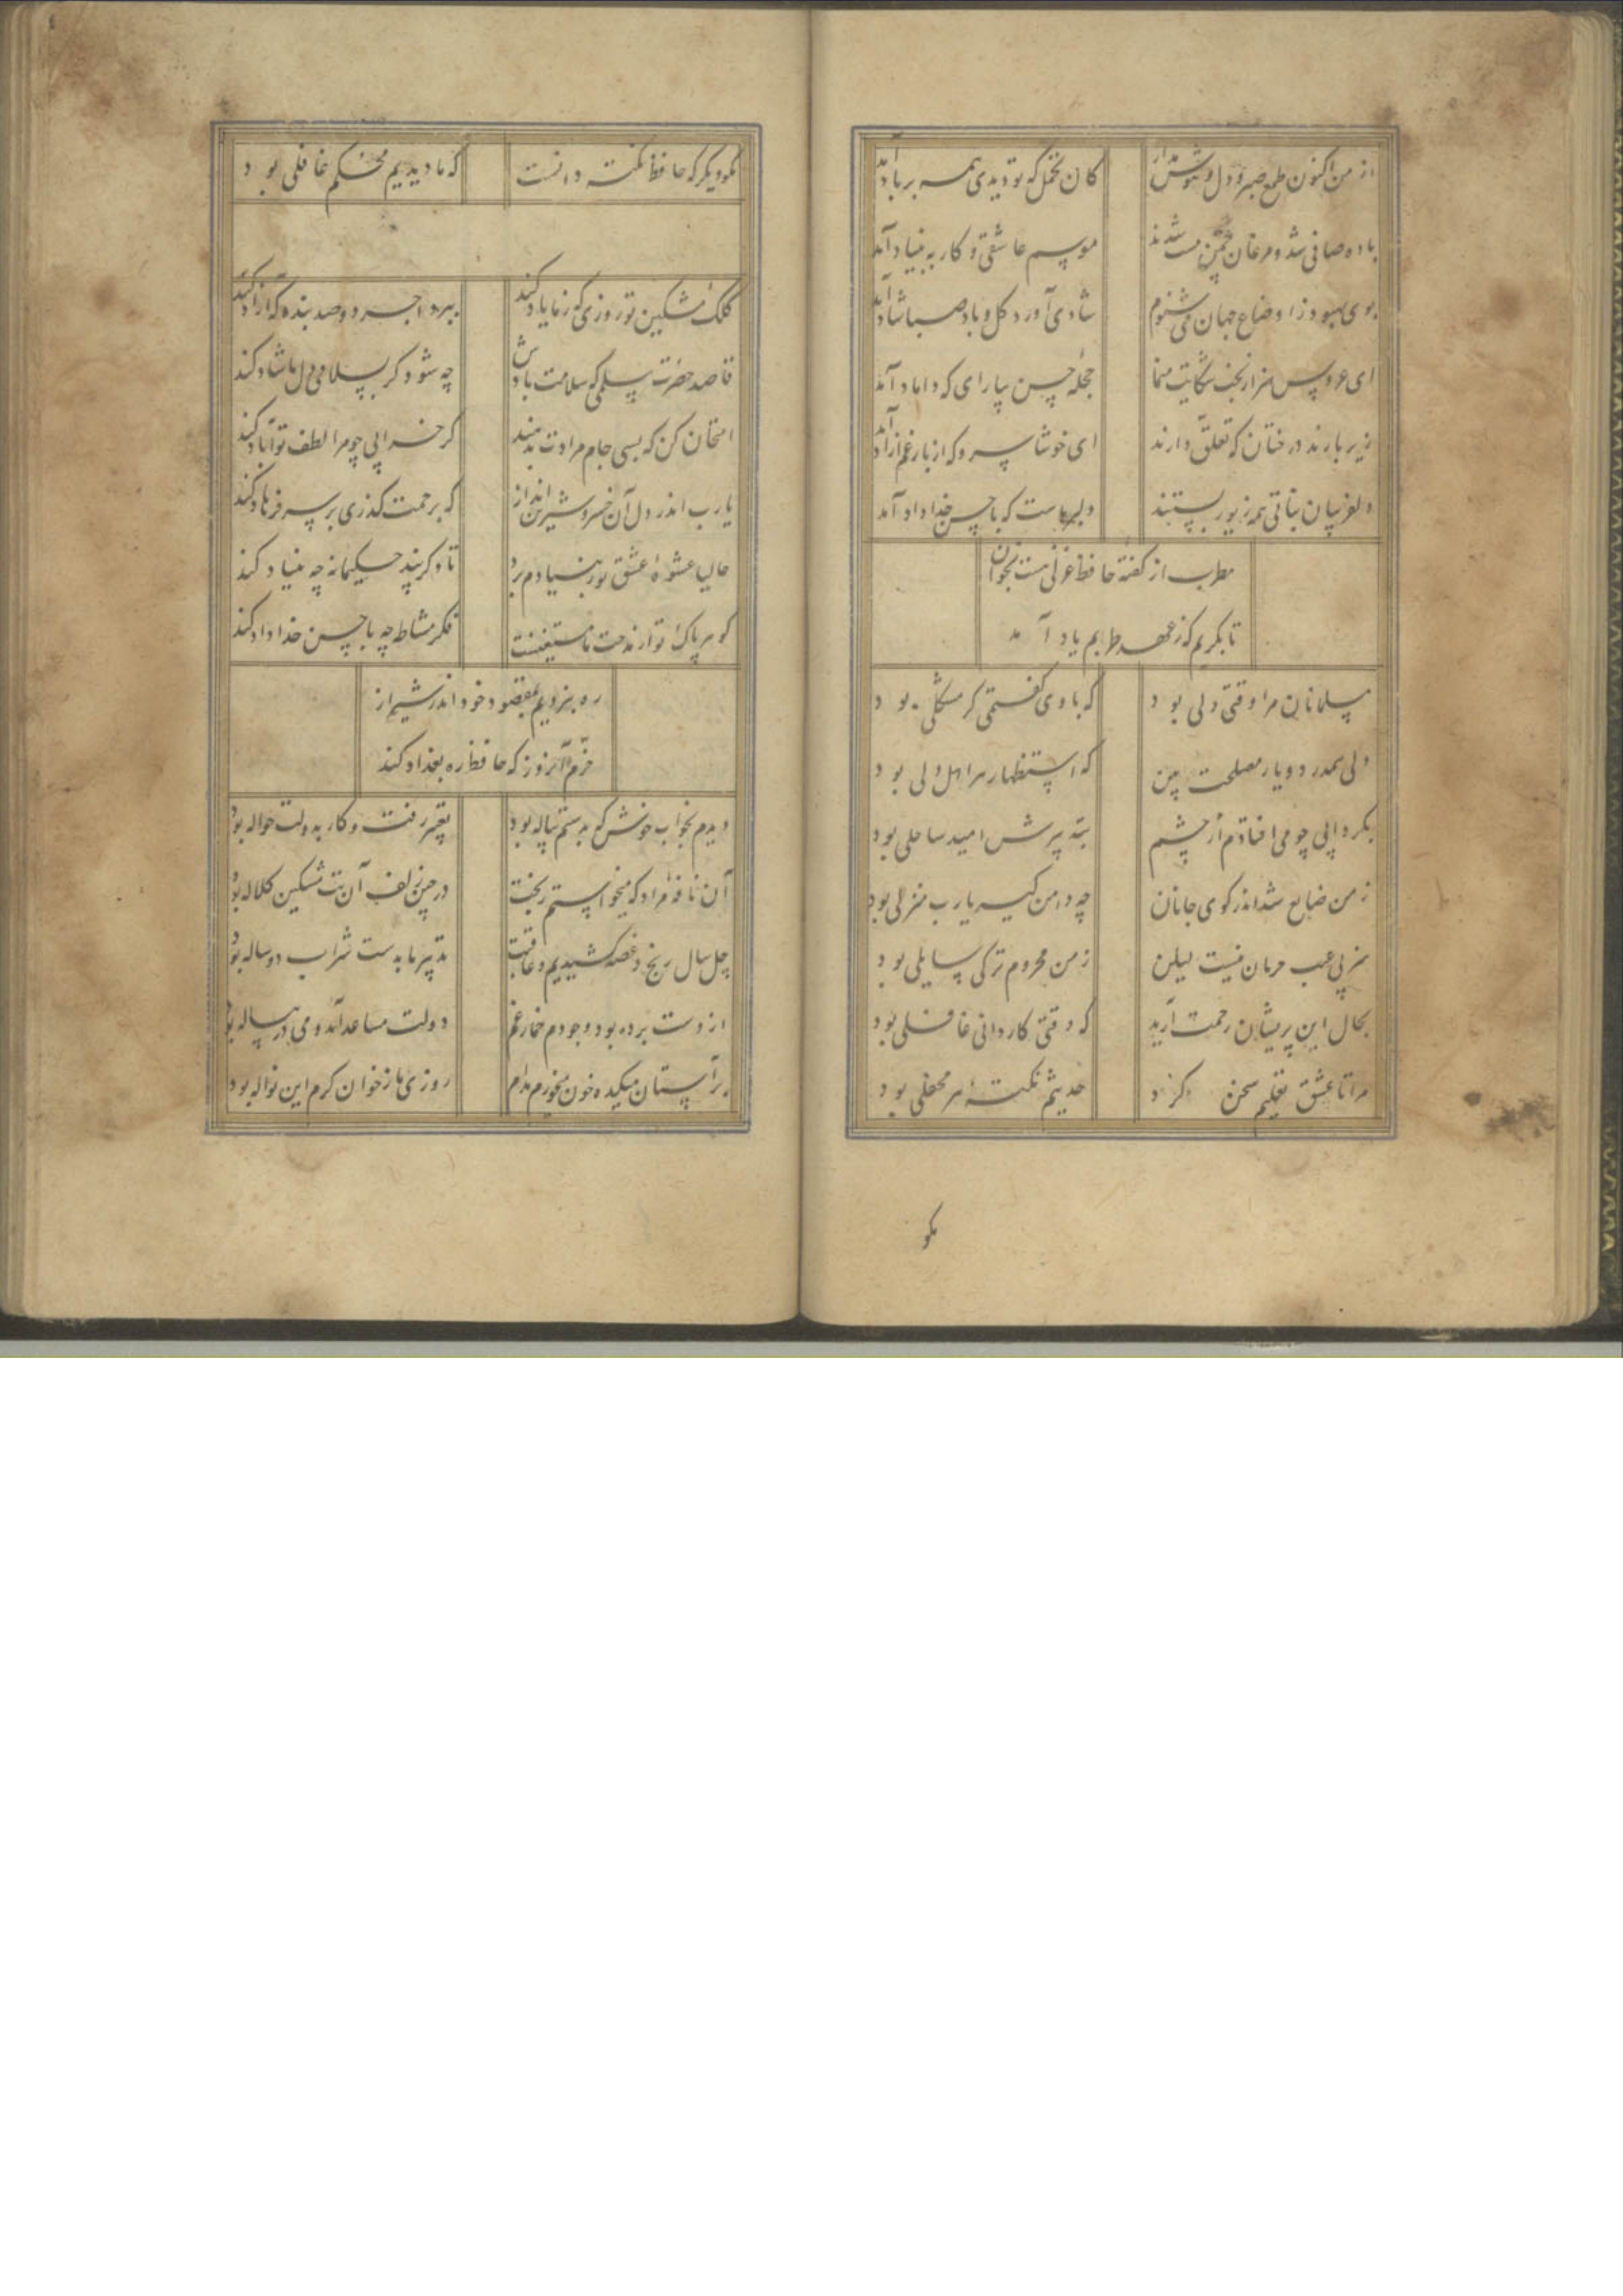 از من اکنون طمع صبر و دل و هوش مدار کان تحمل که تو دیدی همه بر باد آمد
باده صافی شد و مرغان چمن مست شدند موسم عاشقی و کار به بنیاد آمد
بوی بهبود ز اوضاع جهان می شنوم شادی آورد گل و باد صبا شاد آمد
ای عروس هنر از بخت شکایت منما حجلهٔ حسن بیارای که داماد آمد
زیر بارند درختان که تعلق دارند ای خوشا سرو که از بار غم آزاد آمد
دلفریبان نباتی همه زیور بستند دلبر ماست که با حسن خداداد آمد
مطرب از گفتهٔ حافظ غزلی مست بخوان
تا بگریم که ز عهد طربم یاد آمد
مسلمانان مرا وقتی دلی بود که با وی گفتمی گر مشکلی بود
دلی همدرد و یار مصلحت بین که استظهار هر اهل دلی بود
بگردابی چو می افتادم از چشم به پیرش امید ساحلی بود
ز من ضایع شد اندر کوی جانان چه دامن گیر یارب منزلی بود
هنر بی عیب حرمان نیست لیکن ز من محروم تر کی سایلی بود
بحال این پریشان رحمت آرید که وقتی کاردانی غافلی بود
مرا تا عشق تعلیم سخن کرد حدیثم نکتهٔ هر محفلی بود
مکو
مکو دیگر که حافظ نکته دانست که ما دیدیم محکم غافلی بود
کلک مشکین تو روزی که ز ما یاد کند ببرد اجر دو صد بنده که آزاد کند
قاصد حضرت سلمی که سلامت بادش چه شود گر بسلامی دل ما شاد کند
امتحان کن که بسی جام مرادت بدهند گر خرابی چو مرا لطف تو آباد کند
یارب اندر دل آن خسرو شیرین انداز که برحمت گذری بر سر فرهاد کند
حالیا عشوهٔ عشق تو ز بنیادم برد تا دگر بند حکیمانه چه بنیاد کند
گوهر پاک تو از مدحت ما مستغنیست فکر مشاطه چه با حسن خداداد کند
ره نبردیم بمقصود خود اندر شیراز
خرم آنروز که حافظ ره بغداد کند
دیدم بخواب خوش که بدستم پیاله بود تعبیر رفت و کار بدولت حواله بود
آن نافهٔ مراد که میخواستم ز بخت در چین زلف آن بت مشکین کلاله بود
چل سال رنج و غصه کشیدیم و عاقبت تدبیر ما بدست شراب دوساله بود
از دست برده بود وجودم خمار غم دولت مساعد آمد و می در پیاله بود
بر آستان میکده خون میخورم مدام روزی ما ز خوان کرم این نواله بود